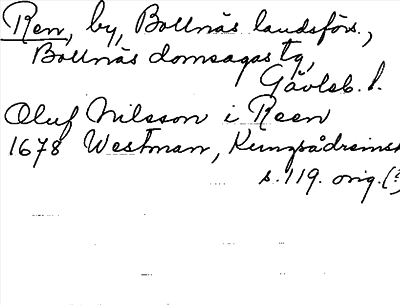 Ren, by, Bollnäs landsförs.,
Bollnäs domsagas tg,
Gävleb. l.
Oluf Nilsson i Reen
1678 Westman, Kungsådreinsk
s. 119. orig. (?)